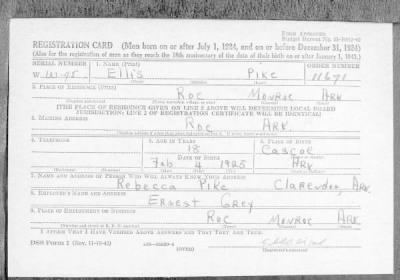 FORM APPROVED
REGISTRATION CARD (Men born on or after July 1, 1924, and on or before December 31, 1924)
(Also for the registration of men as they reach the 18th anniversary of the date of their birth on or after January 1, 1943.)
SERIAL NUMBER 1. NAME (Print) ORDER NUMBER
W Ellis Pike 11671
2. PLACE OF RESIDENCE (Print)
Roe Monroe Ark
[THE PLACE OF RESIDENCE GIVEN ON LINE 2 ABOVE WILL DETERMINE LOCAL BOARD
JURISDICTION; LINE 2 OF REGISTRATION CERTIFICATE WILL BE IDENTICAL]
3. MAILING ADDRESS
Roe Ark.
4. TELEPHONE 5. AGE IN YEARS 6. PLACE OF BIRTH
18 Cascoe
DATE OF BIRTH
Feb 4 1925 Ark
7. NAME AND ADDRESS OF PERSON WHO WILL ALWAYS KNOW YOUR ADDRESS
Rebecca Pike Clarendon, Ark.
8. EMPLOYER'S NAME AND ADDRESS
Ernest Grey
9. PLACE OF EMPLOYMENT OR BUSINESS
Roe Monroe Ark
I AFFIRM THAT I HAVE VERIFIED ABOVE ANSWERS AND THAT THEY ARE TRUE.
DSS Form 1 (Rev. 11-16-42) (OVER)